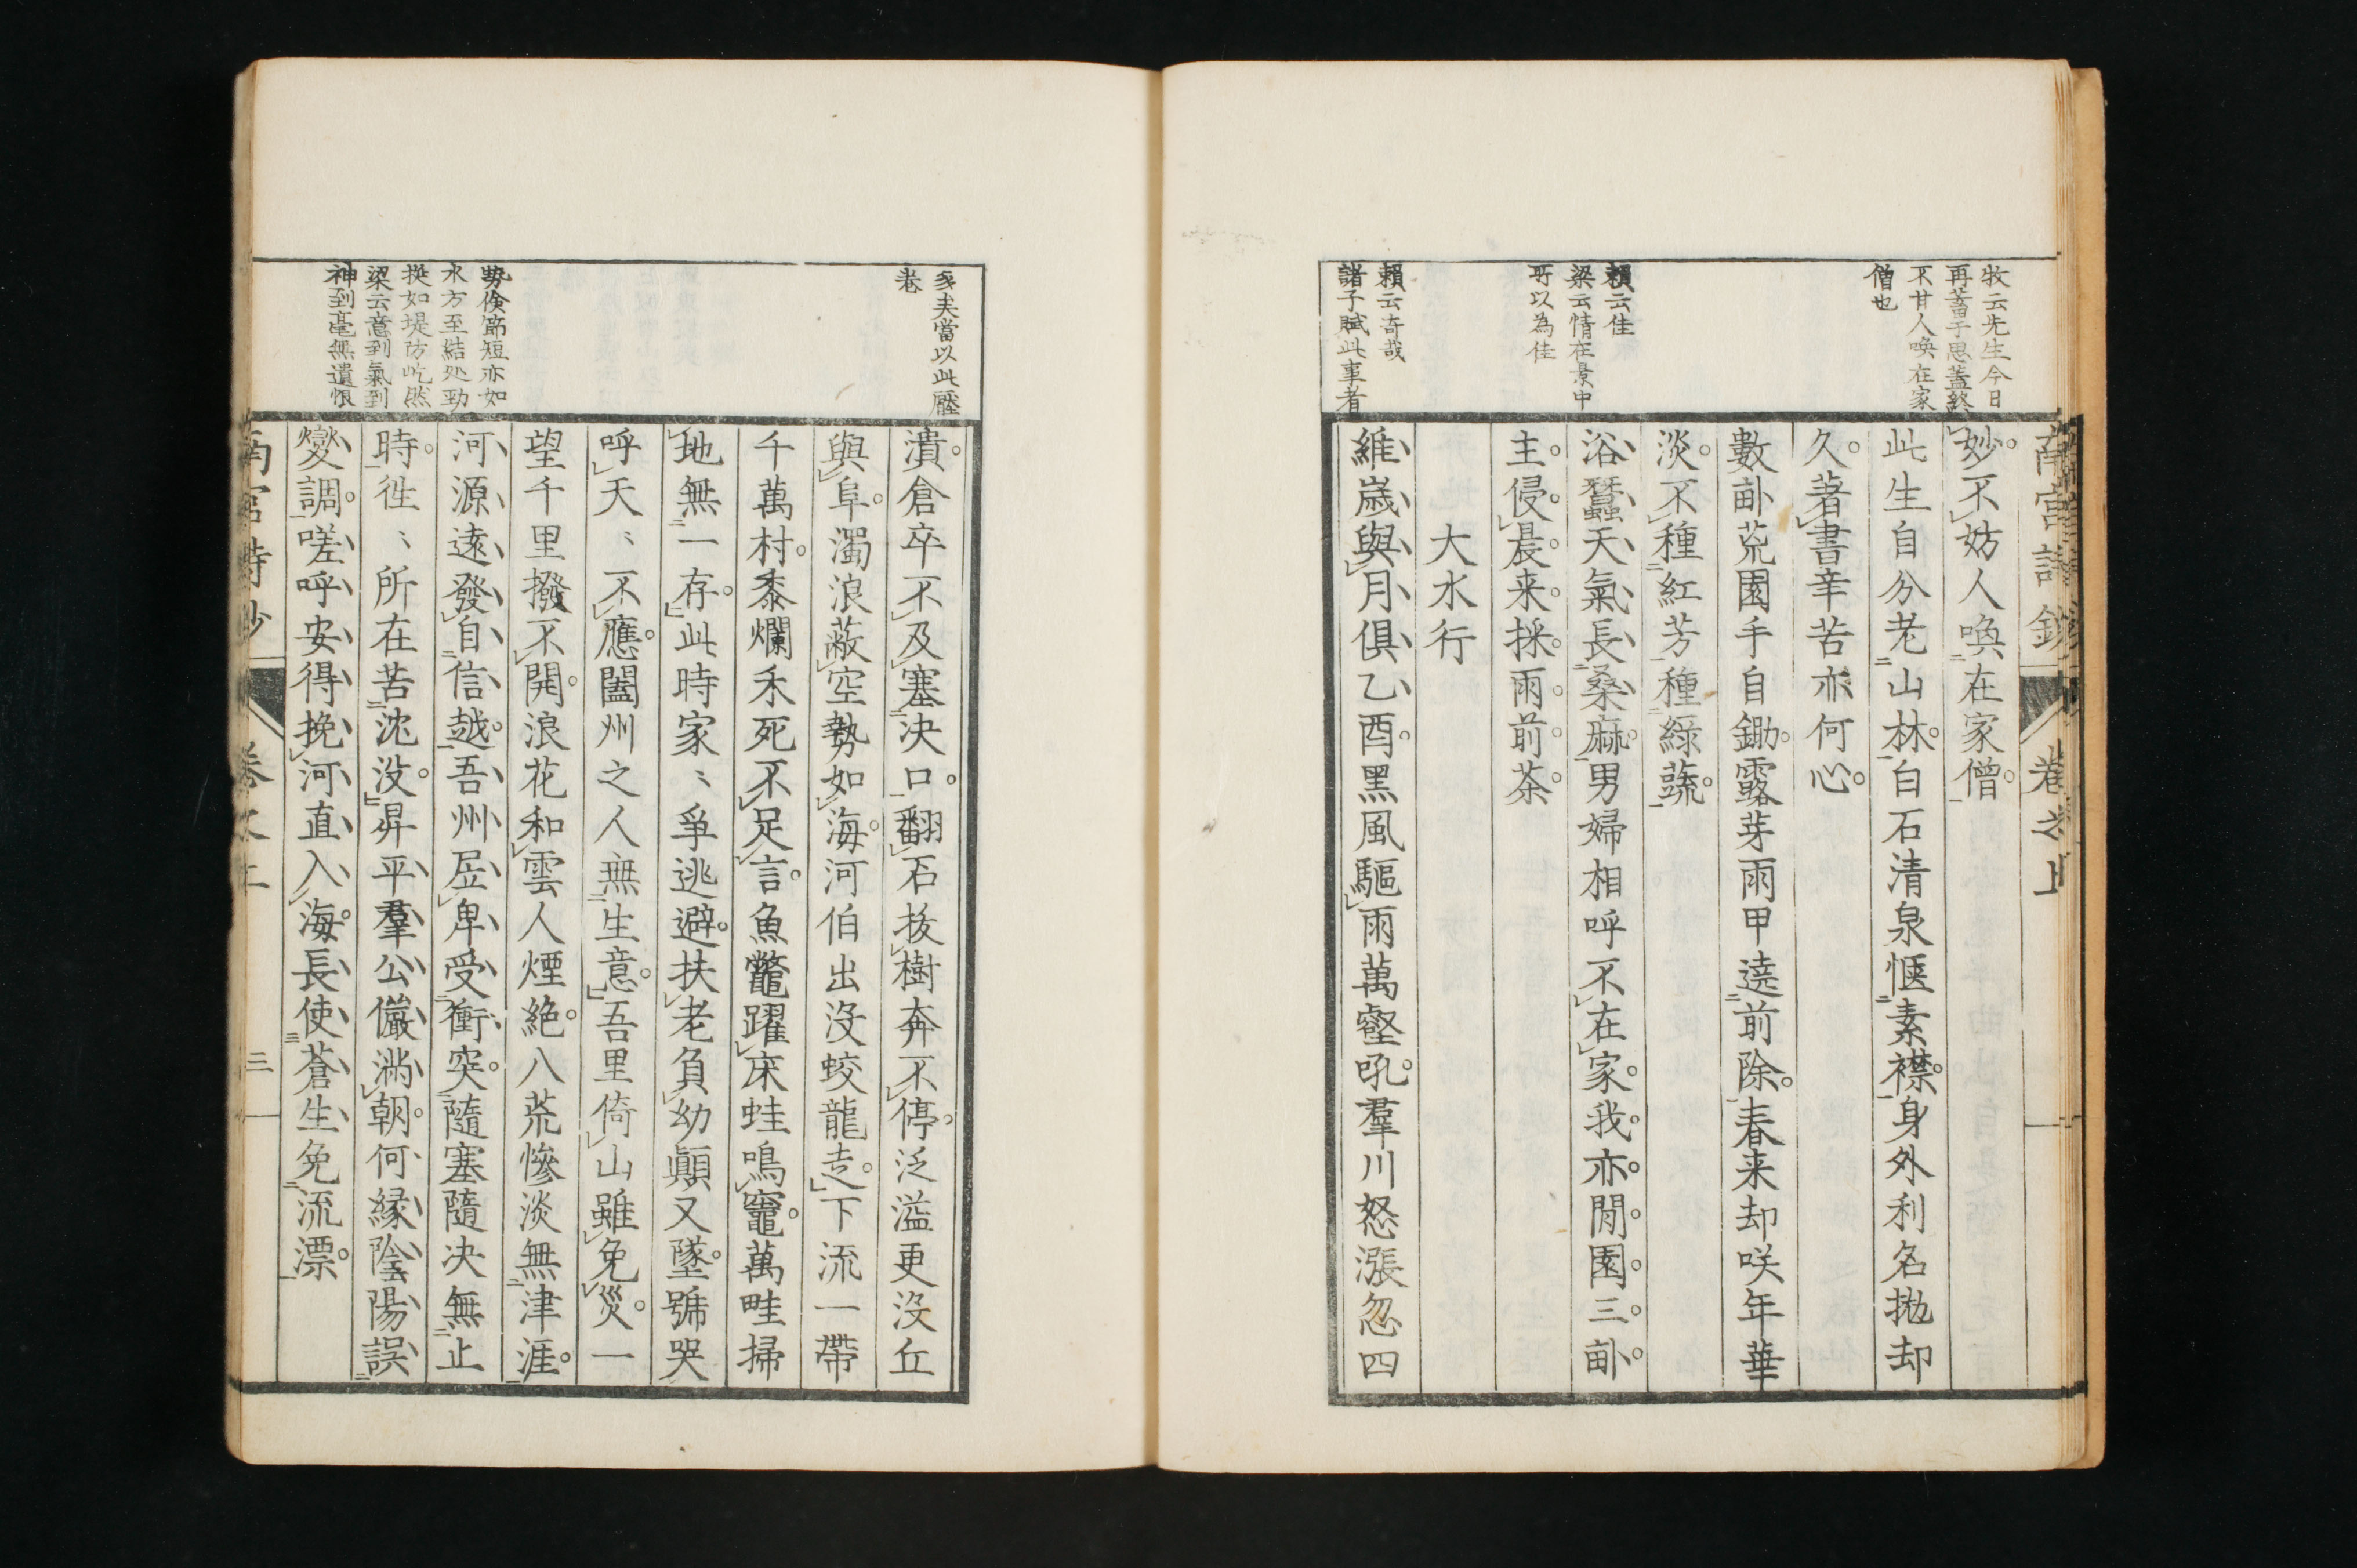 牧云先生今日
再蓄于思蓋終
不甘人喚在家
僧也
賴云佳
梁云情在景中
所以為佳
賴云奇哉
諸子賦此事者
南宮詩鈔 卷之上
妙不妨人喚在家僧
此生自分老山林白石清泉愜素襟身外利名抛却
久著書辛苦亦何心
數畝荒園手自鋤露芽雨甲遶前除春来却咲年華
淡不種紅芳種綠蔬
浴蠶天氣長桑麻男婦相呼不在家我亦閒園三畝
主侵晨来採雨前茶
大水行
維歳與月俱乙酉黑風驅雨萬壑吼羣川怒漲忽四
多矣當以此壓
卷
勢儉節短亦如
水方至結処勁
挺如堤防屹然
梁云意到氣到
神到毫無遺恨
潰倉卒不及塞决口翻石抜樹奔不停泛溢更沒丘
與阜濁浪蔽空勢如海河伯出没蛟龍走下流一帶
千萬村黍爛禾死不足言魚鼈躍床蛙鳴竈萬畦掃
地無一存此時家〻爭逃避扶老負幼顛又墜號哭
呼天〻不應闔州之人無生意吾里倚山雖免災一
望千里撥不開浪花和雲人煙絶八荒慘淡無津涯
河源遠發自信越吾州居卑受衝突隨塞隨决無止
時徃〻所在苦沈没昇平羣公儼滿朝何縁陰陽誤
燮調嗟呼安得挽河直入海長使蒼生免流漂
南宮詩鈔 卷之上 三